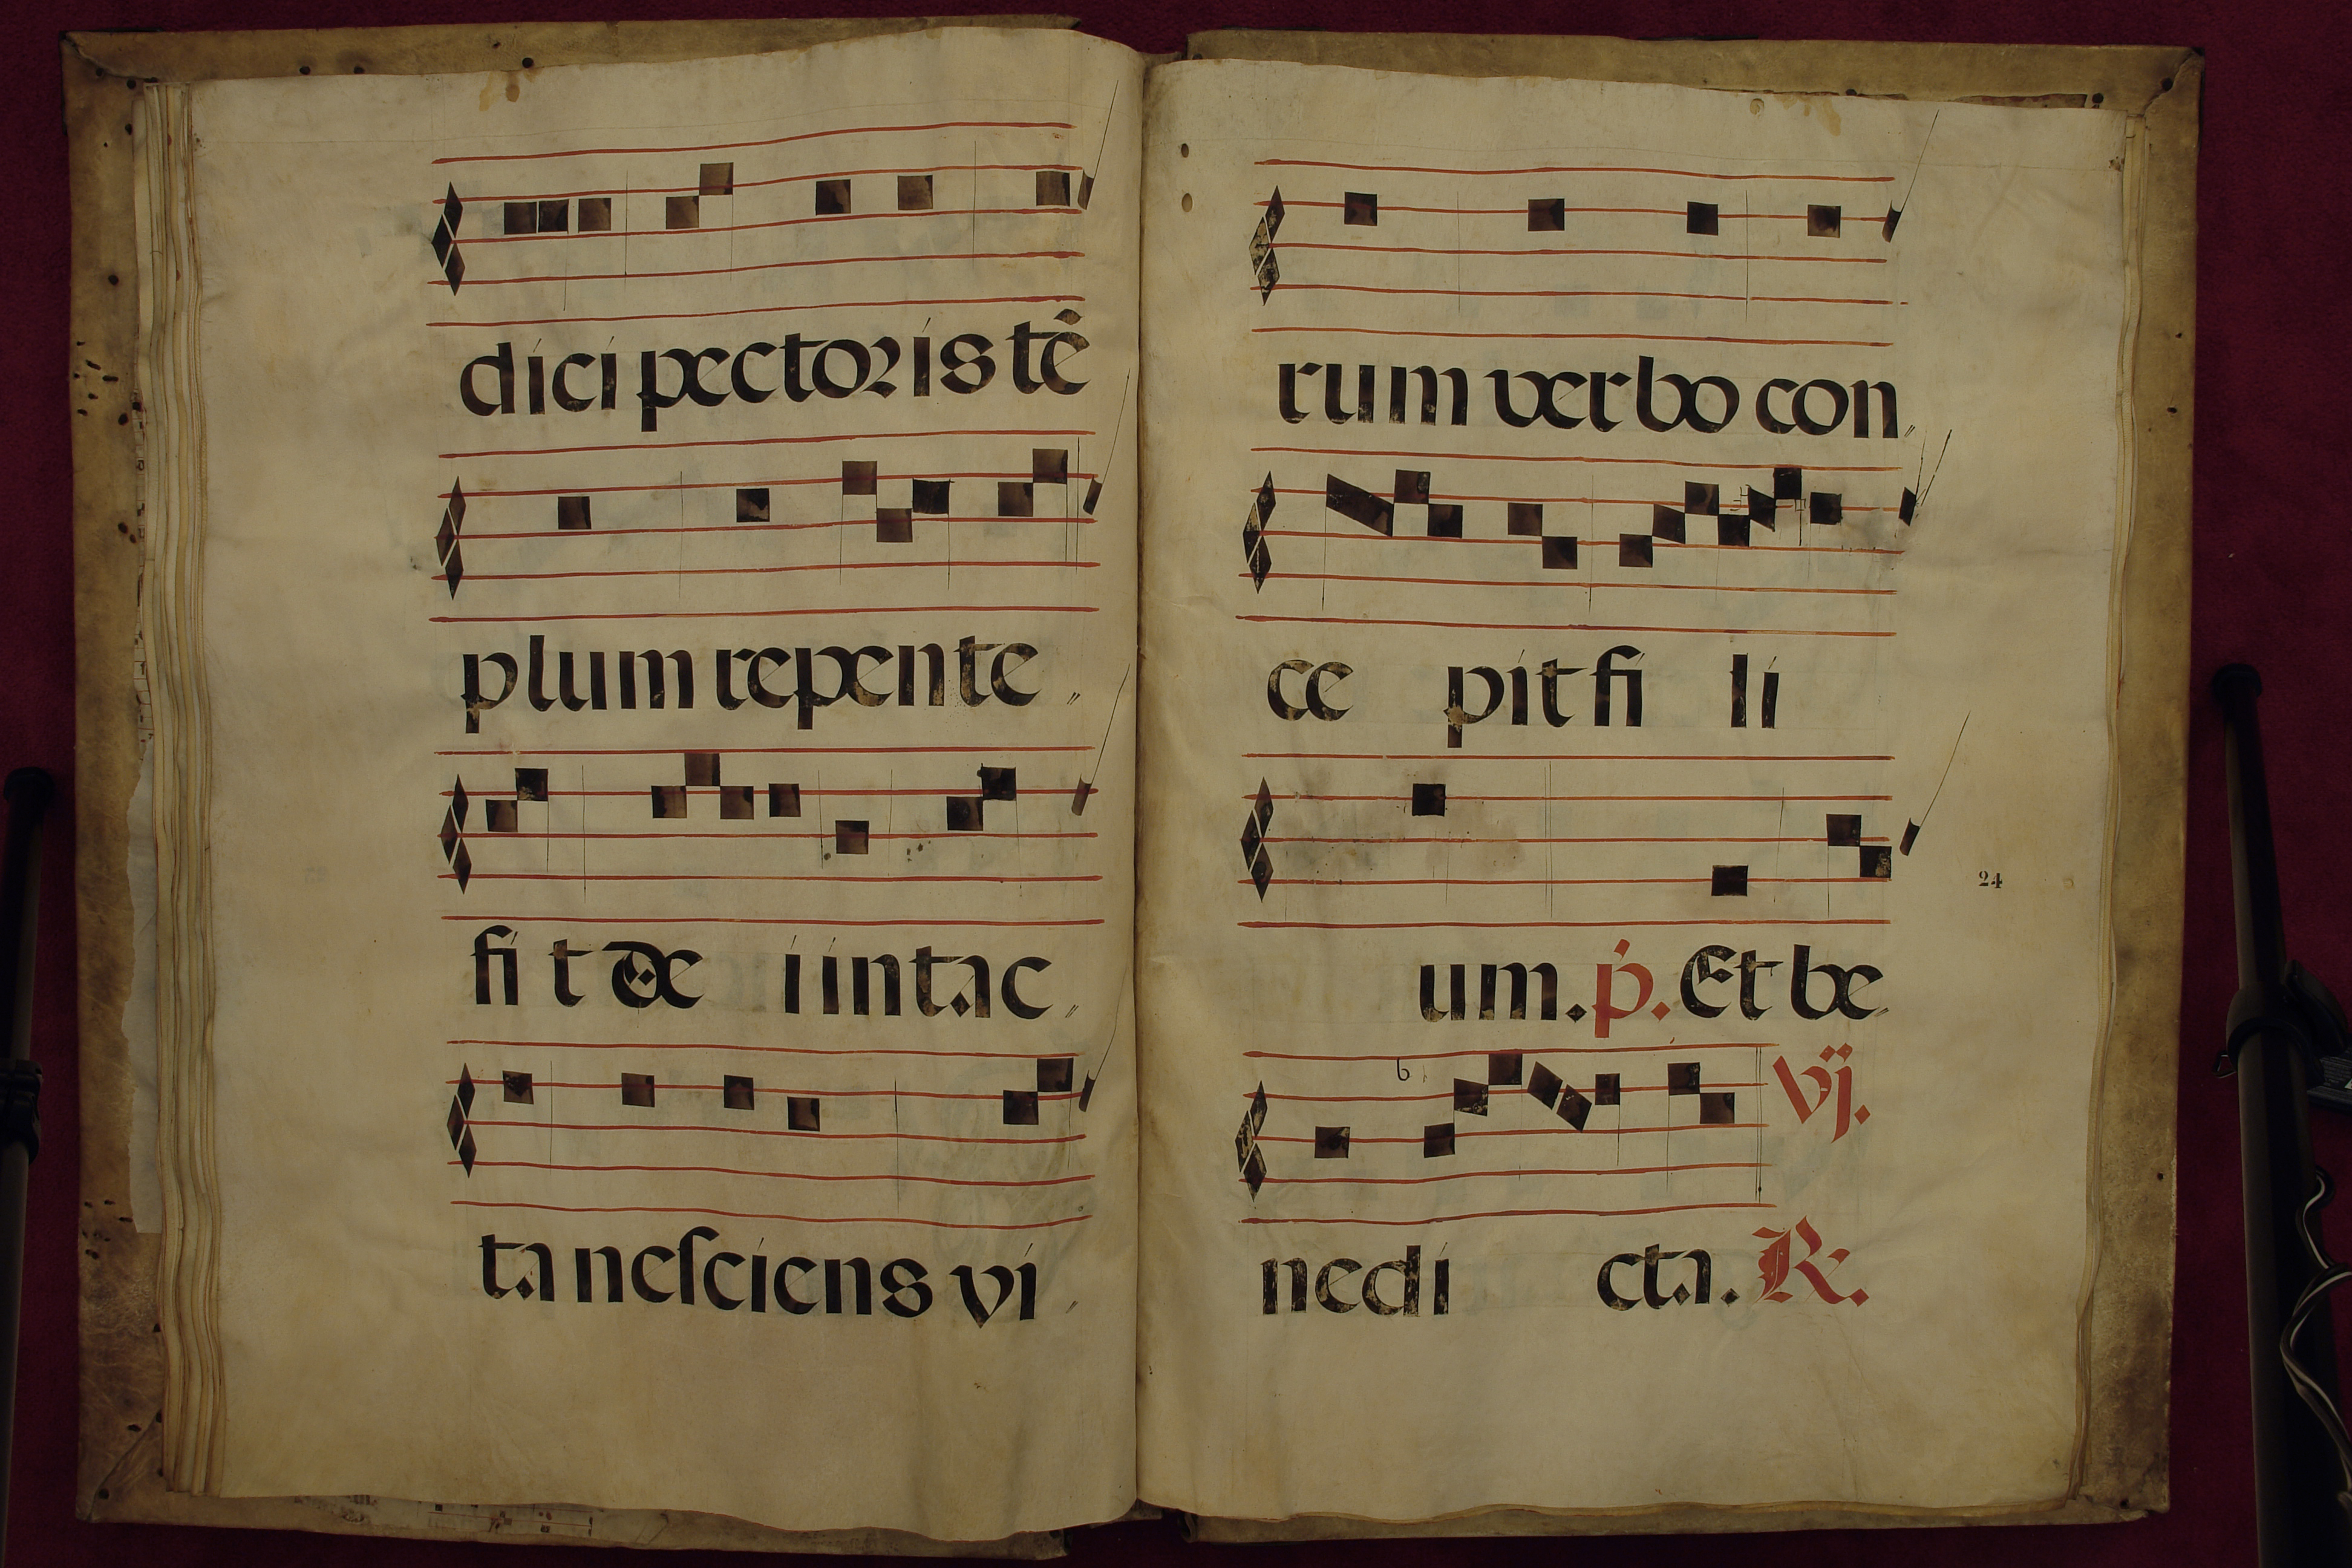 dici pectoris tē
plum repente
fit de i intac
ta neſciens vi
rum verbo con
ce pit fi li
um. p. Et be
24
b
vj.
nedi cta. R.